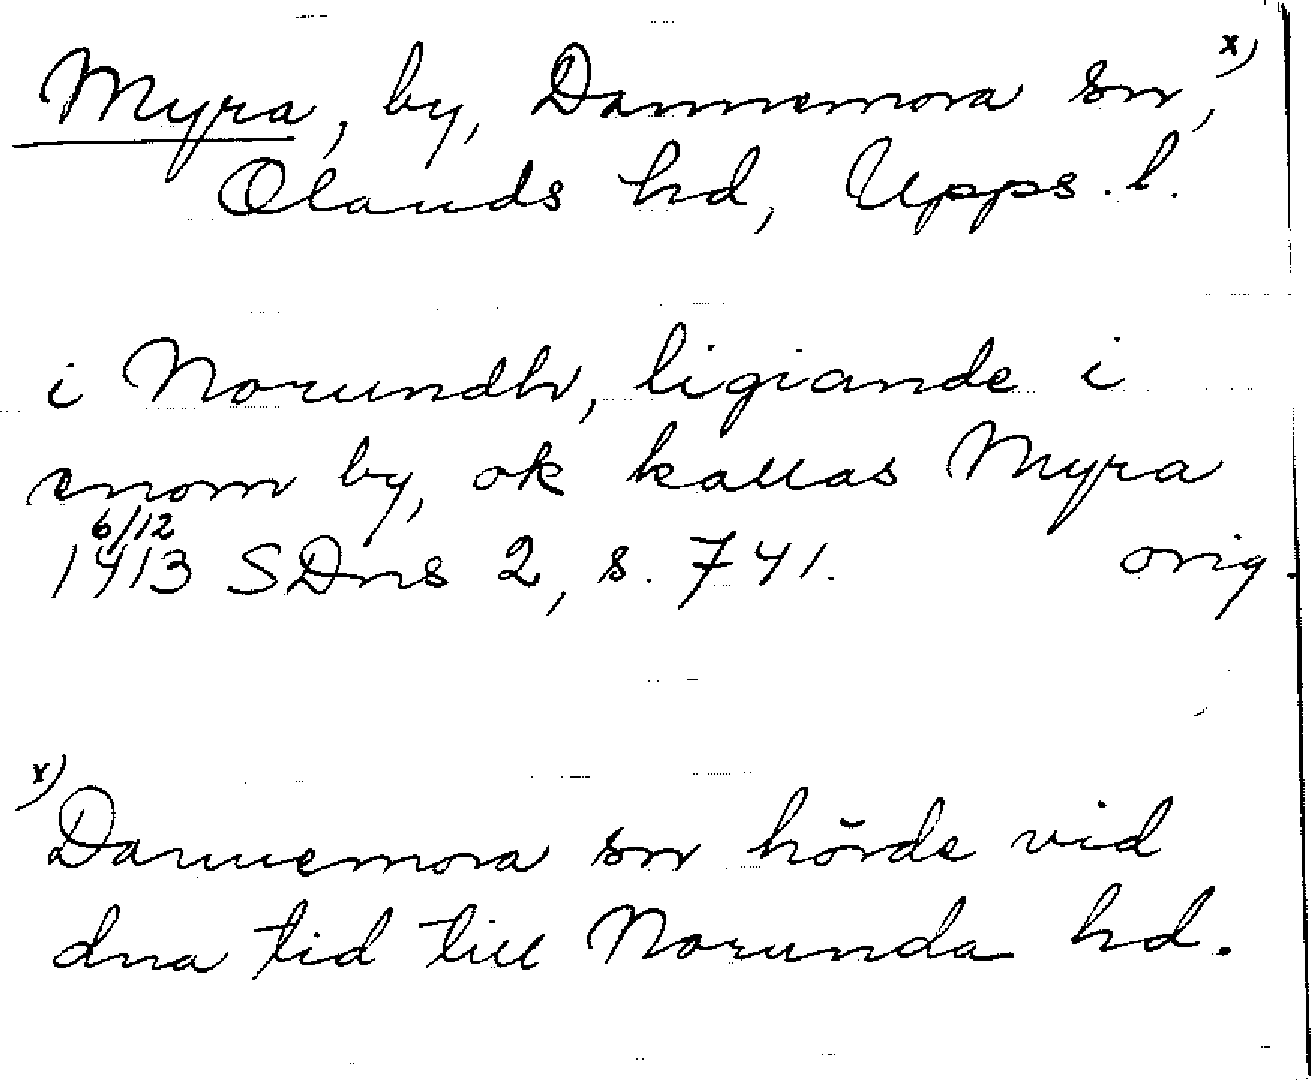 Myra, by, Dannemora sn, x)
Olands hd, Upps. l.
i Norundh, ligiande i
enom by, ok kallas Myra
6/12
1413 SDns 2, s. 741. orig.
x)
Dannemora sn hörde vid
dna tid till Norunda hd.